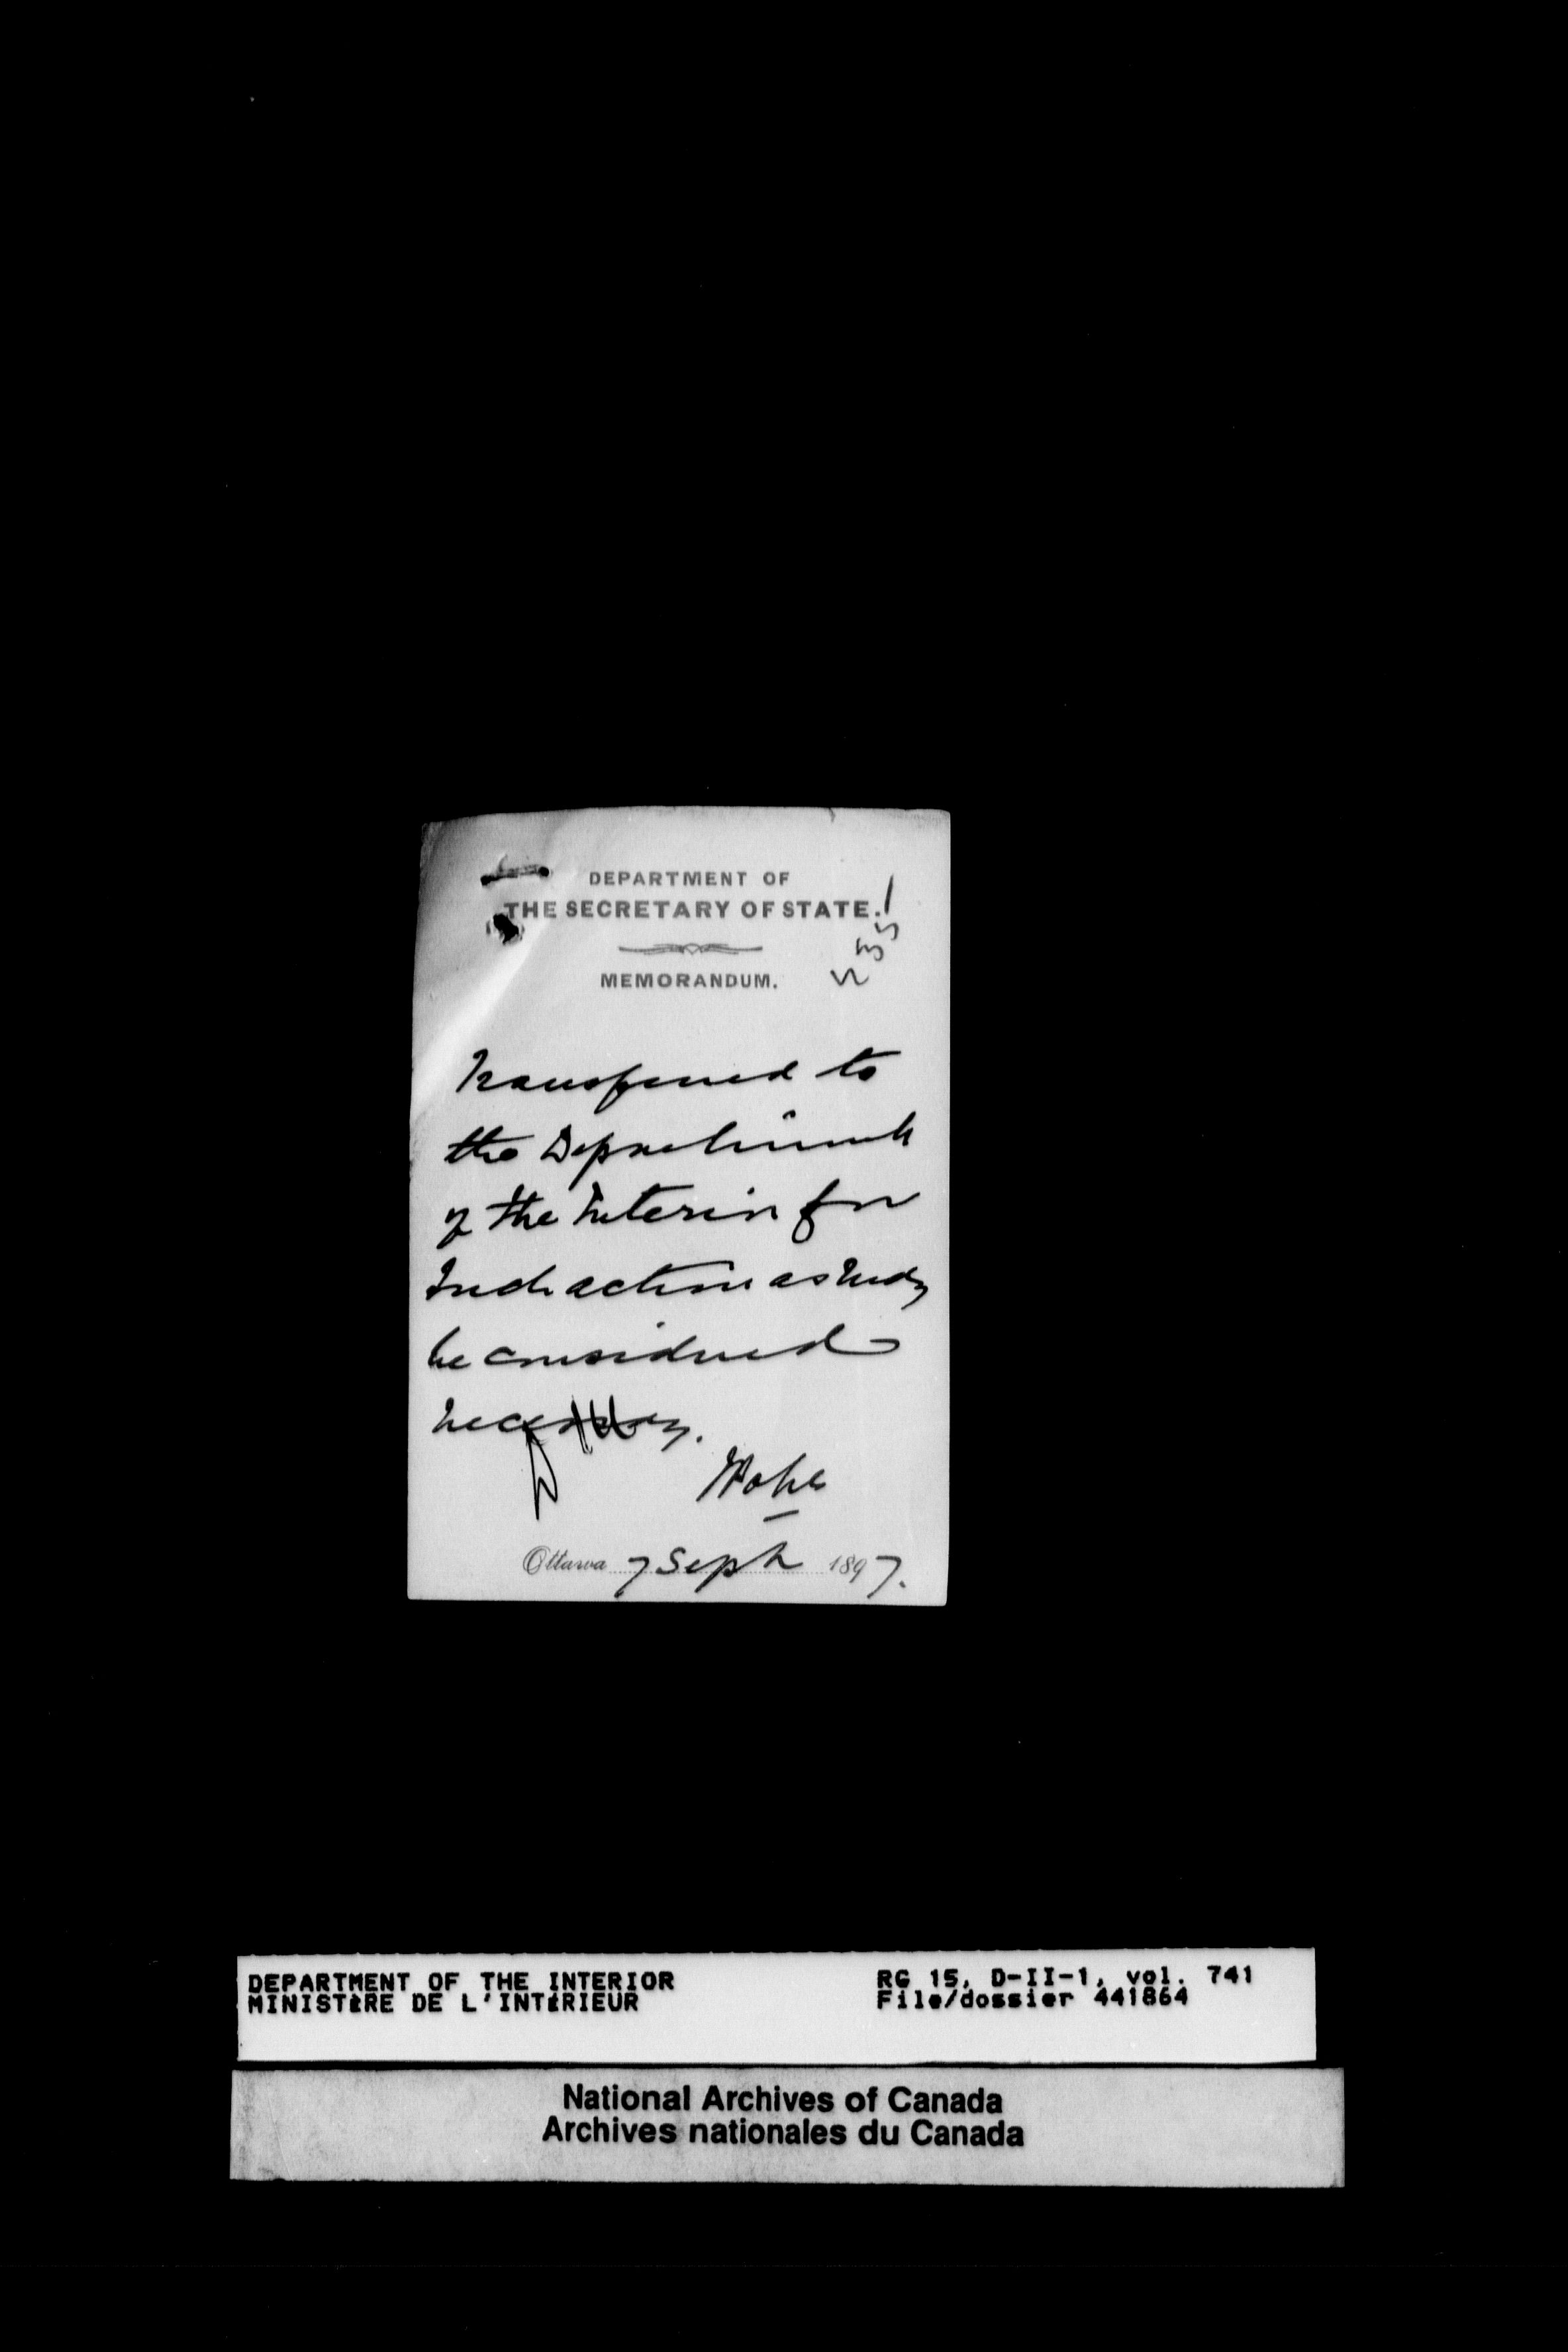 DEPARTMENT OF
THE SECRETARY OF STATE.
MEMORANDUM.
Transferred to
the Department
of the Interior for
such action as may
be considered
necessary.
Ottawa 7 Sept 1897.
DEPARTMENT OF THE INTERIOR
MINISTÈRE DE L'INTÉRIEUR
RG 15, D-II-1, vol. 741
File/dossier 441864
National Archives of Canada
Archives nationales du Canada